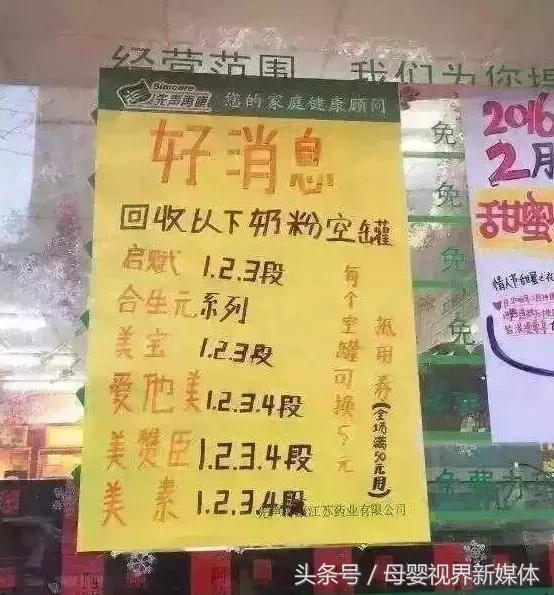 经营范围 我们为您提
Simcare
先声再康 您的家庭健康顾问
好消息
回收以下奶粉空罐
启赋 1.2.3段
合生元系列
美宝 1.2.3段
爱他美 1.2.3.4段
美赞臣 1.2.3.4段
美素 1.2.3.4段
每个空罐可换5元
抵用券(全场满50元用)
江苏药业有限公司
免
免
免
免
免费
2016
2月
甜蜜
情人节甜蜜之夜
头条号 / 母婴视界新媒体